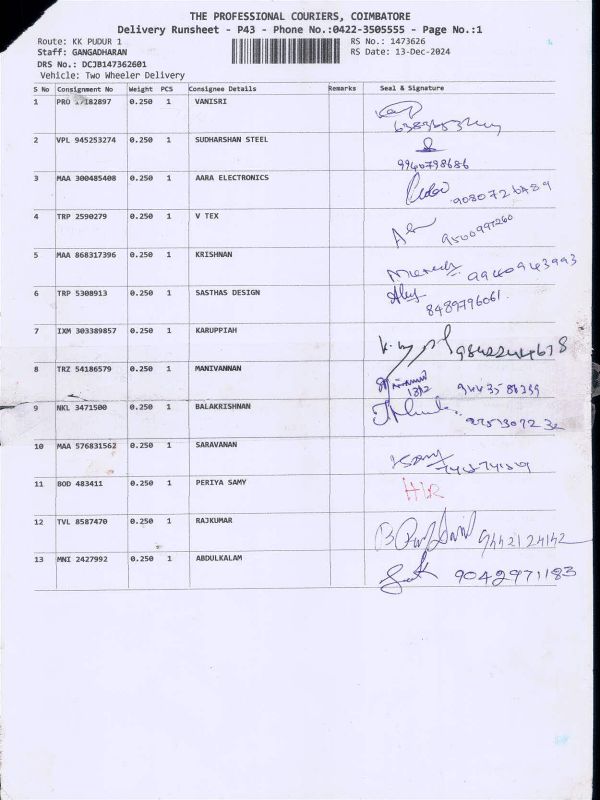 THE PROFESSIONAL COURIERS, COIMBATORE
Delivery Runsheet - P43 - Phone No.:0422-3505555 - Page No.:1
Route: KK PUDUR 1 RS No.: 1473626
Staff: GANGADHARAN RS Date: 13-Dec-2024
DRS No.: DCJB147362601
Vehicle: Two Wheeler Delivery
S No Consignment No Weight PCS Consignee Details Remarks Seal & Signature
1 PRO 17182897 0.250 1 VANISRI
2 VPL 945253274 0.250 1 SUDHARSHAN STEEL 9940798686
3 MAA 300485408 0.250 1 AARA ELECTRONICS
4 TRP 2590279 0.250 1 V TEX 9500997260
5 MAA 868317396 0.250 1 KRISHNAN 9940943993
6 TRP 5308913 0.250 1 SASTHAS DESIGN 8489796061
7 IXM 303389857 0.250 1 KARUPPIAH
8 TRZ 54186579 0.250 1 MANIVANNAN
9 NKL 3471500 0.250 1 BALAKRISHNAN
10 MAA 576831562 0.250 1 SARAVANAN
11 BOD 483411 0.250 1 PERIYA SAMY
12 TVL 8587470 0.250 1 RAJKUMAR 9442124142
13 MNI 2427992 0.250 1 ABDULKALAM 9042971183